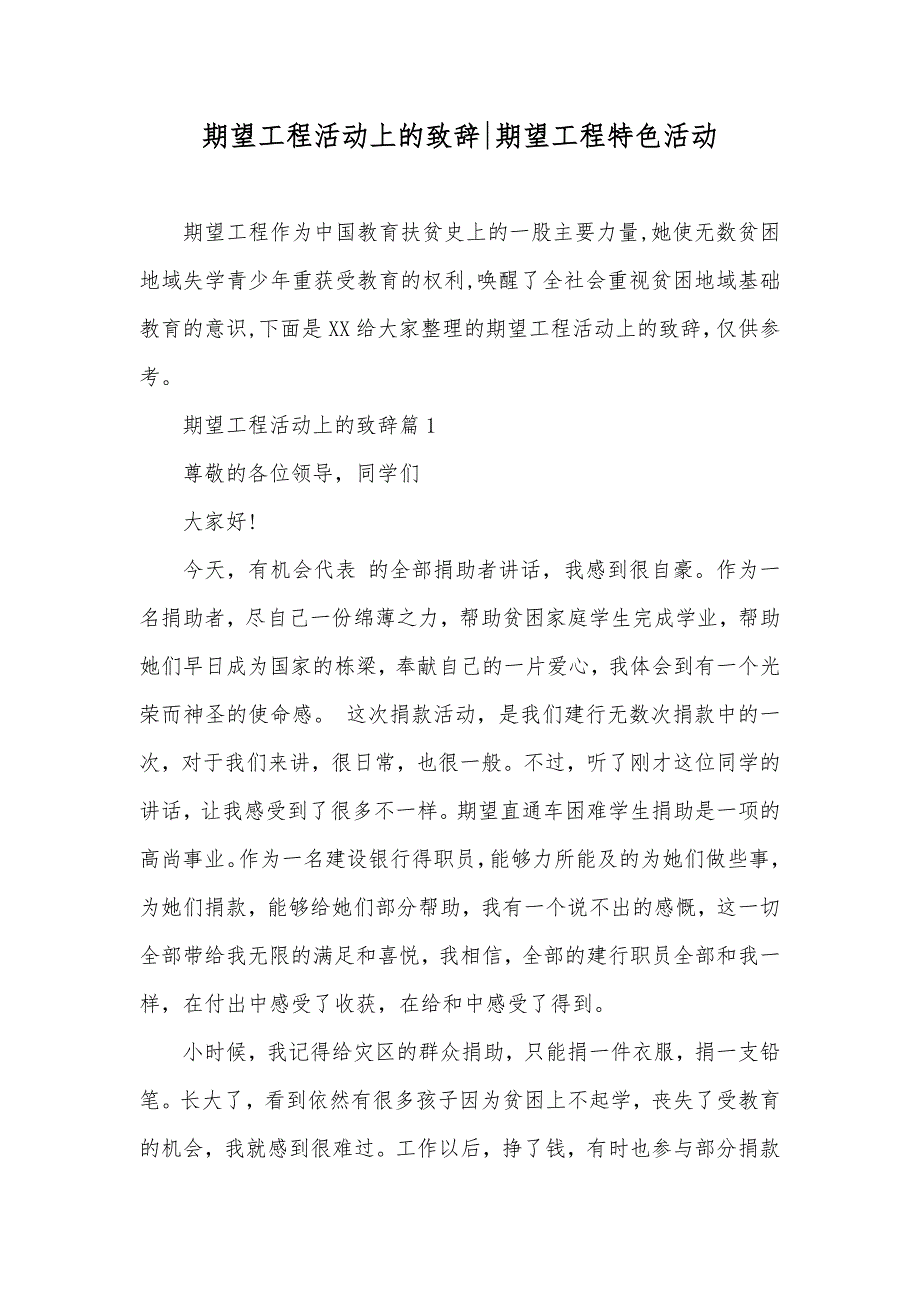 期望工程活动上的致辞|期望工程特色活动
期望工程作为中国教育扶贫史上的一股主要力量,她使无数贫困
地域失学青少年重获受教育的权利,唤醒了全社会重视贫困地域基础
教育的意识,下面是 XX 给大家整理的期望工程活动上的致辞,仅供参
考。
期望工程活动上的致辞篇 1
尊敬的各位领导，同学们
大家好!
今天，有机会代表 的全部捐助者讲话，我感到很自豪。作为一
名捐助者，尽自己一份绵薄之力，帮助贫困家庭学生完成学业，帮助
她们早日成为国家的栋梁，奉献自己的一片爱心，我体会到有一个光
荣而神圣的使命感。 这次捐款活动，是我们建行无数次捐款中的一
次，对于我们来讲，很日常，也很一般。不过，听了刚才这位同学的
讲话，让我感受到了很多不一样。期望直通车困难学生捐助是一项的
高尚事业。作为一名建设银行得职员，能够力所能及的为她们做些事，
为她们捐款，能够给她们部分帮助，我有一个说不出的感慨，这一切
全部带给我无限的满足和喜悦，我相信，全部的建行职员全部和我一
样，在付出中感受了收获，在给和中感受了得到。
小时候，我记得给灾区的群众捐助，只能捐一件衣服，捐一支铅
笔。长大了，看到依然有很多孩子因为贫困上不起学，丧失了受教育
的机会，我就感到很难过。工作以后，挣了钱，有时也参与部分捐款